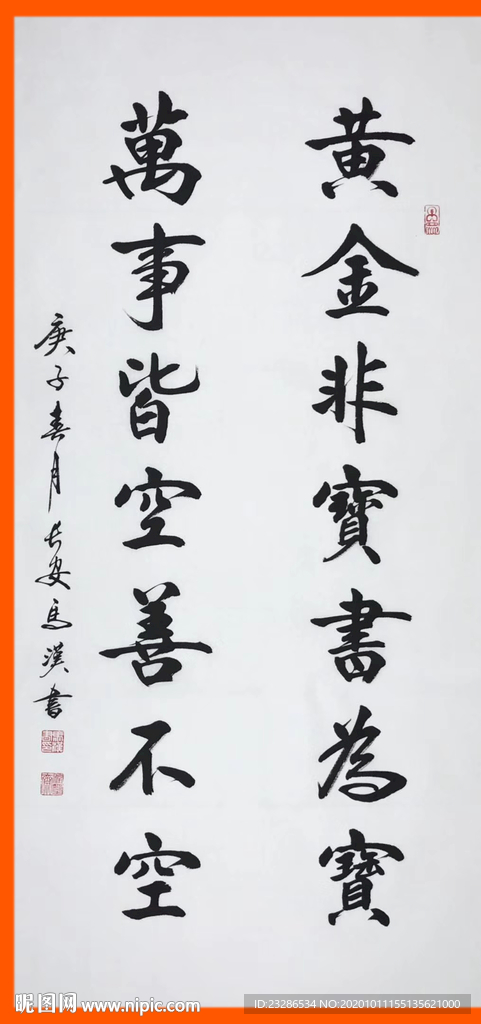 黄金非寶書為寶
萬事皆空善不空
庚子春月長安馬漢書
昵图网 www.nipic.com
ID:23286534 NO:20201011155135621000